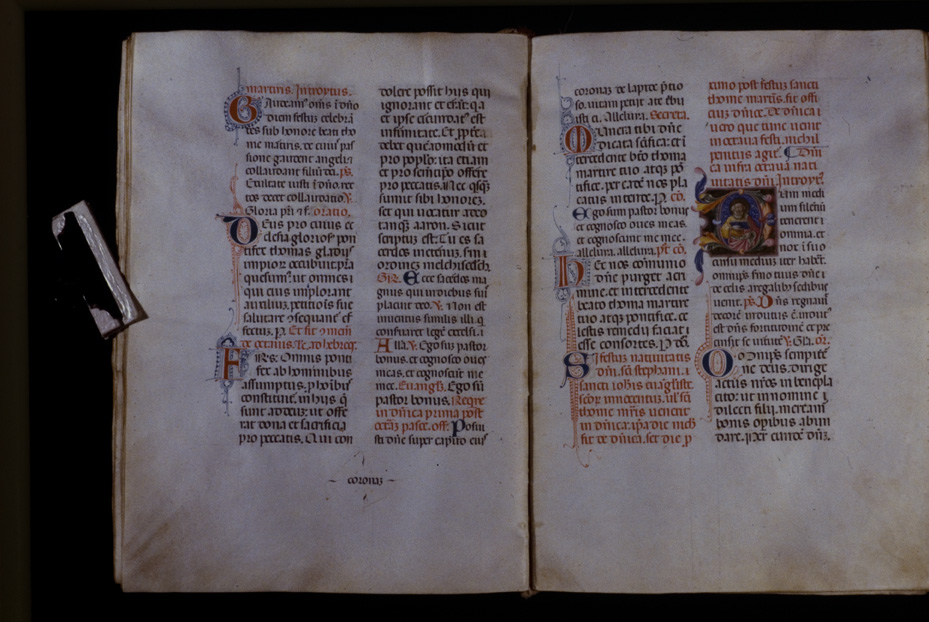 martiris. Introitus.
Gaudeam' om̄s ī dn̄o
diem festum celebrā
tes sub honore beati tho
me martiris. de cuius pas
sione gaudent angeli
collaudant filiū dei. ps.
Exultate iusti ī dn̄o rec
tos decet collaudatio. V.
Gloria pr̄i. oratio.
Deus pro cuius ec
clesia gloriosus pon
tifex thomas gladiis
impior occubuit p̄sta
quesum'. ut omnes
qui eius implorant
auxiliū. petitōis sue
salutarē ɔsequant' ef
fectum. p.
Fr̄es: Omnis ponti
fex ab hominibus
assumptus. p hoībus
constituit'. in hijs q̄
sunt ad deū: ut offe
rat dona et sacrificia
pro peccatis. Qui con
dolere possit hijs qui
ignorant et errāt: q̄a
et ipse circūdat' est
infirmitate. Et ppterea
debet quēadmodū et
pro populo: ita etiam
et pro semetipo offerre
pro peccatis. Nec q̄sq̄
sumit sibi honorez.
set qui vocatur a deo
tanq̄ aaron. Sicut
scriptus est: Tu es sa
cerdos in eternuz. sm̄
ordinez melchisedech.
GR. Ecce sacerdos ma
gnus qui in diebus suis
placuit deo. V. Non est
inuentus similis illi q̄
conseruaret legē excelsi.
All. V. Ego sum pastor
bonus. et cognosco oues
meas. et cognoscūt me
mee. Euangl. Ego sū
pastor bonus. Require
in dn̄ica prima post
octā pasce. off. Posui
sti dn̄e super caput eius
coronaz
coronaz de lapide p̄tio
so. vitam petijt a te tribu
isti ei. Alleluia. Secreta.
Munera tibi dn̄e
dicata sc̄ifica: et ī
tercedente bt̄o thoma
martire tuo atq̄ pō
tifice. per eadē nos pla
catus intende. P. cō.
Ego sum pastor bonus
et cognosco oues meas.
et cognoscunt me mee.
alleluia. alleluia. pt cō.
Hec nos cōmunio
dn̄e purget a cri
mine. et intercedente
beato thoma martire
tuo atq̄ pontifice. ce
lestis remedij faciat
esse consortes. P. dn̄.
Si festum natiuitatis
dn̄i. sc̄i stephani.
sancti ioh̄is euāgliste.
seu innocentum. uel sc̄i
thome mr̄is uenerit
in dn̄ica. ipa die nichil
fit de dn̄ica. set die p
ximo post festum sancti
thome martiris. fit offi
cium dn̄ice. Et dn̄ica
uero que tunc uenerit
in octaua festi. nichil
penitus agit'. Dn̄i
ca infra octauā nati
uitatis dn̄i. Introitus.
Dum medi
um silentiū
tenerent
omnia. et
nox ī suo
cursu medium iter haberet.
omnipotens sermo tuus dn̄e
de celis a regalibus sedibus
uenit. ps. Dn̄s regnauit
decorē indutus ē. indut'
est dn̄s fortitudinē et pre
cinxit se uirtute. V. Glā. or.
Omps sempiter
ne deus: dirige
actus nr̄os in benepla
cito: ut in nomine
dilecti filij. merea'
bonis operibus abun
dare. Per eundē dn̄z.